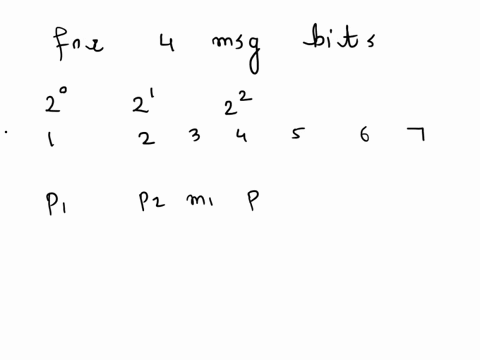 for 4 msg bits
2⁰ 2¹ 2²
1 2 3 4 5 6 7
P1 P2 m1 P